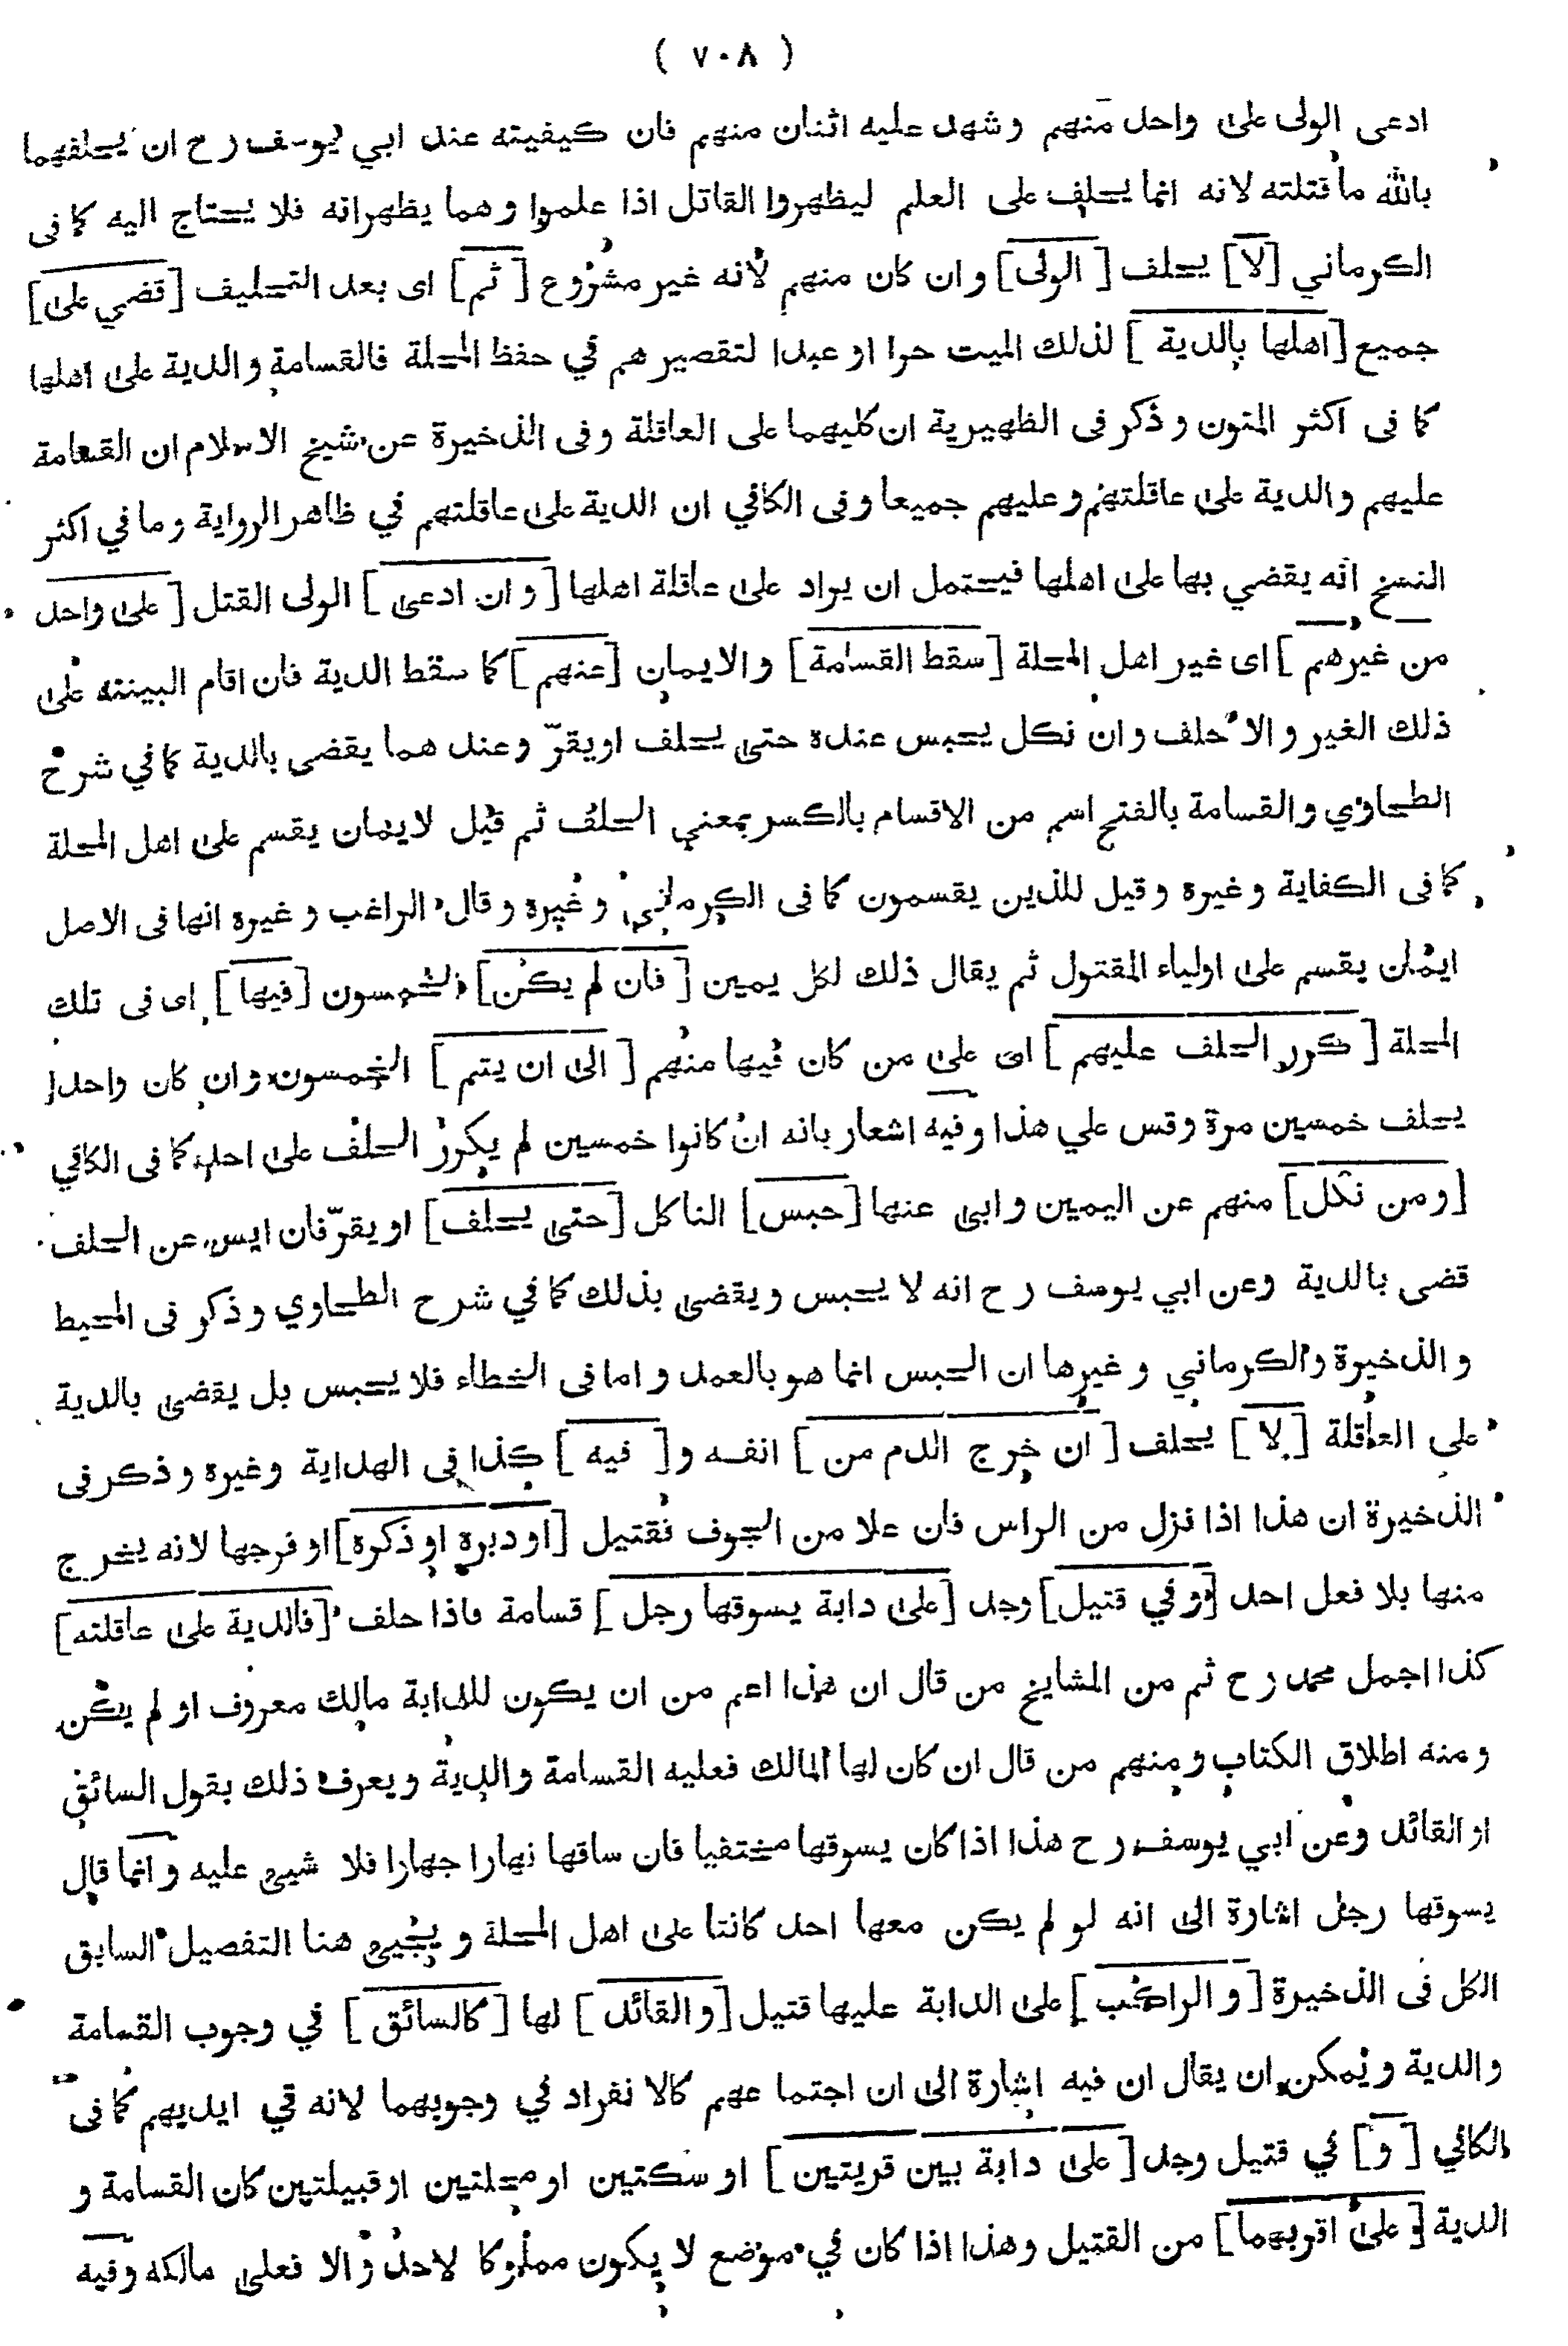 ( ٧٠٨ )
ادعى الولى على واحد منهم وشهد عليه اثنان منهم فان كيفيته عند ابي يوسف رح ان يحلفهما
بالله ما قتلته لانه انما يحلف على العلم ليظهروا القاتل اذا علموا وهما يظهرانه فلا يحتاج اليه كما فى
الكرماني [لا] يحلف [الولى] وان كان منهم لانه غير مشروع [ثم] اى بعد التحليف [قضي على]
جميع [اهلها بالدية] لذلك الميت حرا او عبدا لتقصير هم في حفظ المحلة فالقسامة والدية على اهلها
كما فى اكثر المتون وذكر فى الظهيرية ان كليهما على العاقلة وفى الذخيرة عن شيخ الاسلام ان القسامة
عليهم والدية على عاقلتهم وعليهم جميعا وفى الكافي ان الدية على عاقلتهم في ظاهر الرواية وما في اكثر
النسخ انه يقضي بها على اهلها فيحتمل ان يراد على عاقلة اهلها [وان ادعى] الولى القتل [على واحد
من غيرهم] اى غير اهل المحلة [سقط القسامة] والايمان [عنهم] كما سقط الدية فان اقام البينته على
ذلك الغير والا حلف وان نكل يحبس عنده حتى يحلف اويقرّ وعند هما يقضى بالدية كما في شرح
الطحاوي والقسامة بالفتح اسم من الاقسام بالكسر بمعنى الحلف ثم قيل لايمان يقسم على اهل المحلة
كما فى الكفاية وغيره وقيل للذين يقسمون كما فى الكرماني وغيره وقال الراغب وغيره انها فى الاصل
ايمان يقسم على اولياء المقتول ثم يقال ذلك لكل يمين [فان لم يكن] الخمسون [فيها] اى فى تلك
المحلة [كرر الحلف عليهم] اى على من كان فيها منهم [الى ان يتم] الخمسون وان كان واحدا
يحلف خمسين مرة وقس علي هذا وفيه اشعار بانه ان كانوا خمسين لم يكرر الحلف على احد كما فى الكافي
[ومن نكل] منهم عن اليمين وابى عنها [حبس] الناكل [حتى يحلف] او يقرّ فان ايس عن الحلف
قضى بالدية وعن ابي يوسف رح انه لا يحبس ويقضى بذلك كما في شرح الطحاوي وذكر فى المحيط
والذخيرة والكرماني وغيرها ان الحبس انما هو بالعمد واما فى الخطاء فلا يحبس بل يقضى بالدية
علي العاقلة [لا] يحلف [ان خرج الدم من] انفه و[فيه] كذا فى الهداية وغيره وذكر فى
الذخيرة ان هذا اذا نزل من الراس فان علا من الجوف فقتيل [او دبره او ذكره] او فرجها لانه يخرج
منها بلا فعل احد [وفي قتيل] وجد [على دابة يسوقها رجل] قسامة فاذا حلف [فالدية على عاقلته]
كذا اجمل محمد رح ثم من المشايخ من قال ان هذا اعم من ان يكون للدابة مالك معروف او لم يكن
ومنه اطلاق الكتاب ومنهم من قال ان كان لها المالك فعليه القسامة والدية ويعرف ذلك بقول السائق
او القائد وعن ابي يوسف رح هذا اذا كان يسوقها مختفيا فان ساقها نهارا جهارا فلا شيئ عليه وانما قال
يسوقها رجل اشارة الى انه لو لم يكن معها احد كانتا على اهل المحلة ويجيئ هنا التفصيل السابق
الكل فى الذخيرة [والراكب] على الدابة عليها قتيل [والقائد] لها [كالسائق] في وجوب القسامة
والدية ويمكن ان يقال ان فيه اشارة الى ان اجتما عهم كالا نفراد في وجوبهما لانه في ايديهم كما فى
الكافي [و] في قتيل وجد [على دابة بين قريتين] او سكتين او محلتين او قبيلتين كان القسامة و
الدية [على اقربهما] من القتيل وهذا اذا كان في موضع لا يكون مملوكا لاحد والا فعلى مالكه وفيه